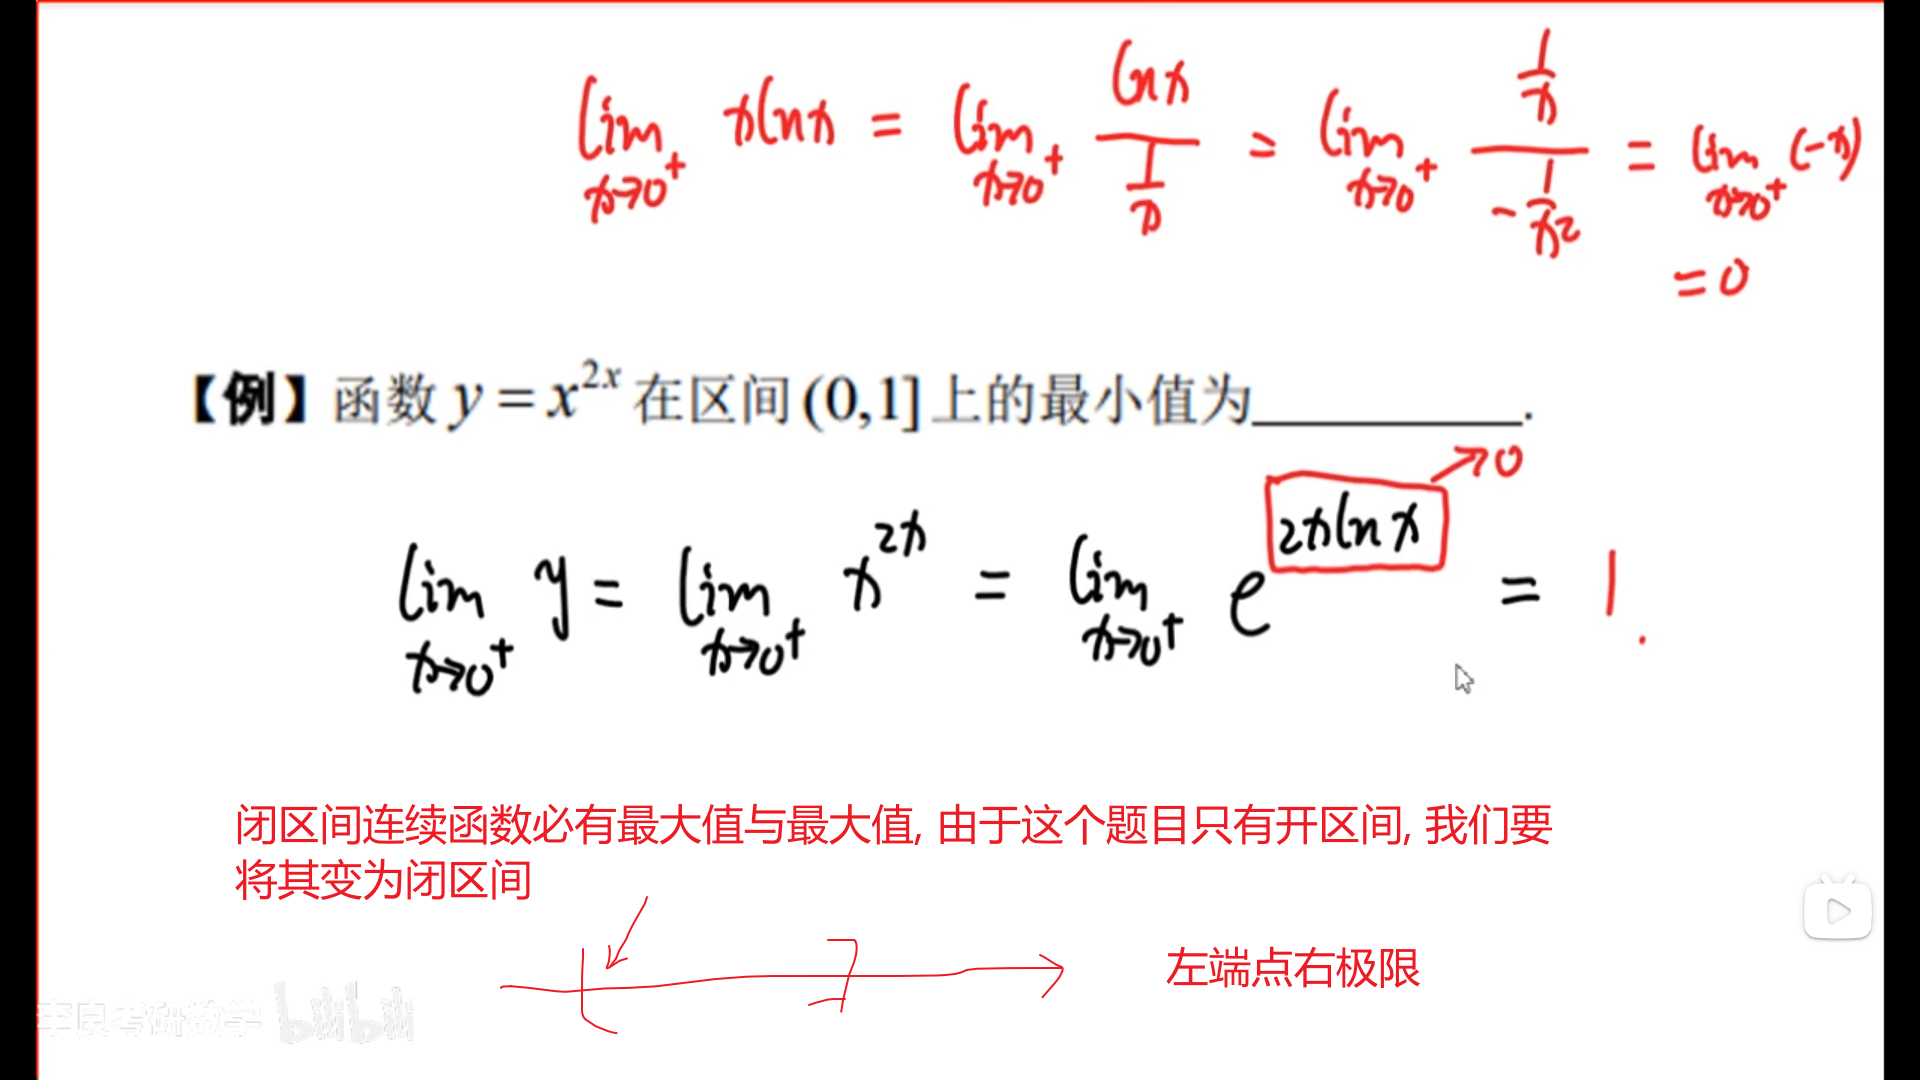 lim x→0⁺ xlnx = lim x→0⁺ lnx / (1/x) = lim x→0⁺ (1/x) / (-1/x²) = lim x→0⁺ (-x)
= 0
【例】函数 y = x^{2x} 在区间 (0,1] 上的最小值为__________.
→0
lim x→0⁺ y = lim x→0⁺ x^{2x} = lim x→0⁺ e^{2xlnx} = 1.
闭区间连续函数必有最大值与最大值, 由于这个题目只有开区间, 我们要
将其变为闭区间
左端点右极限
李良考研数学 bilibili